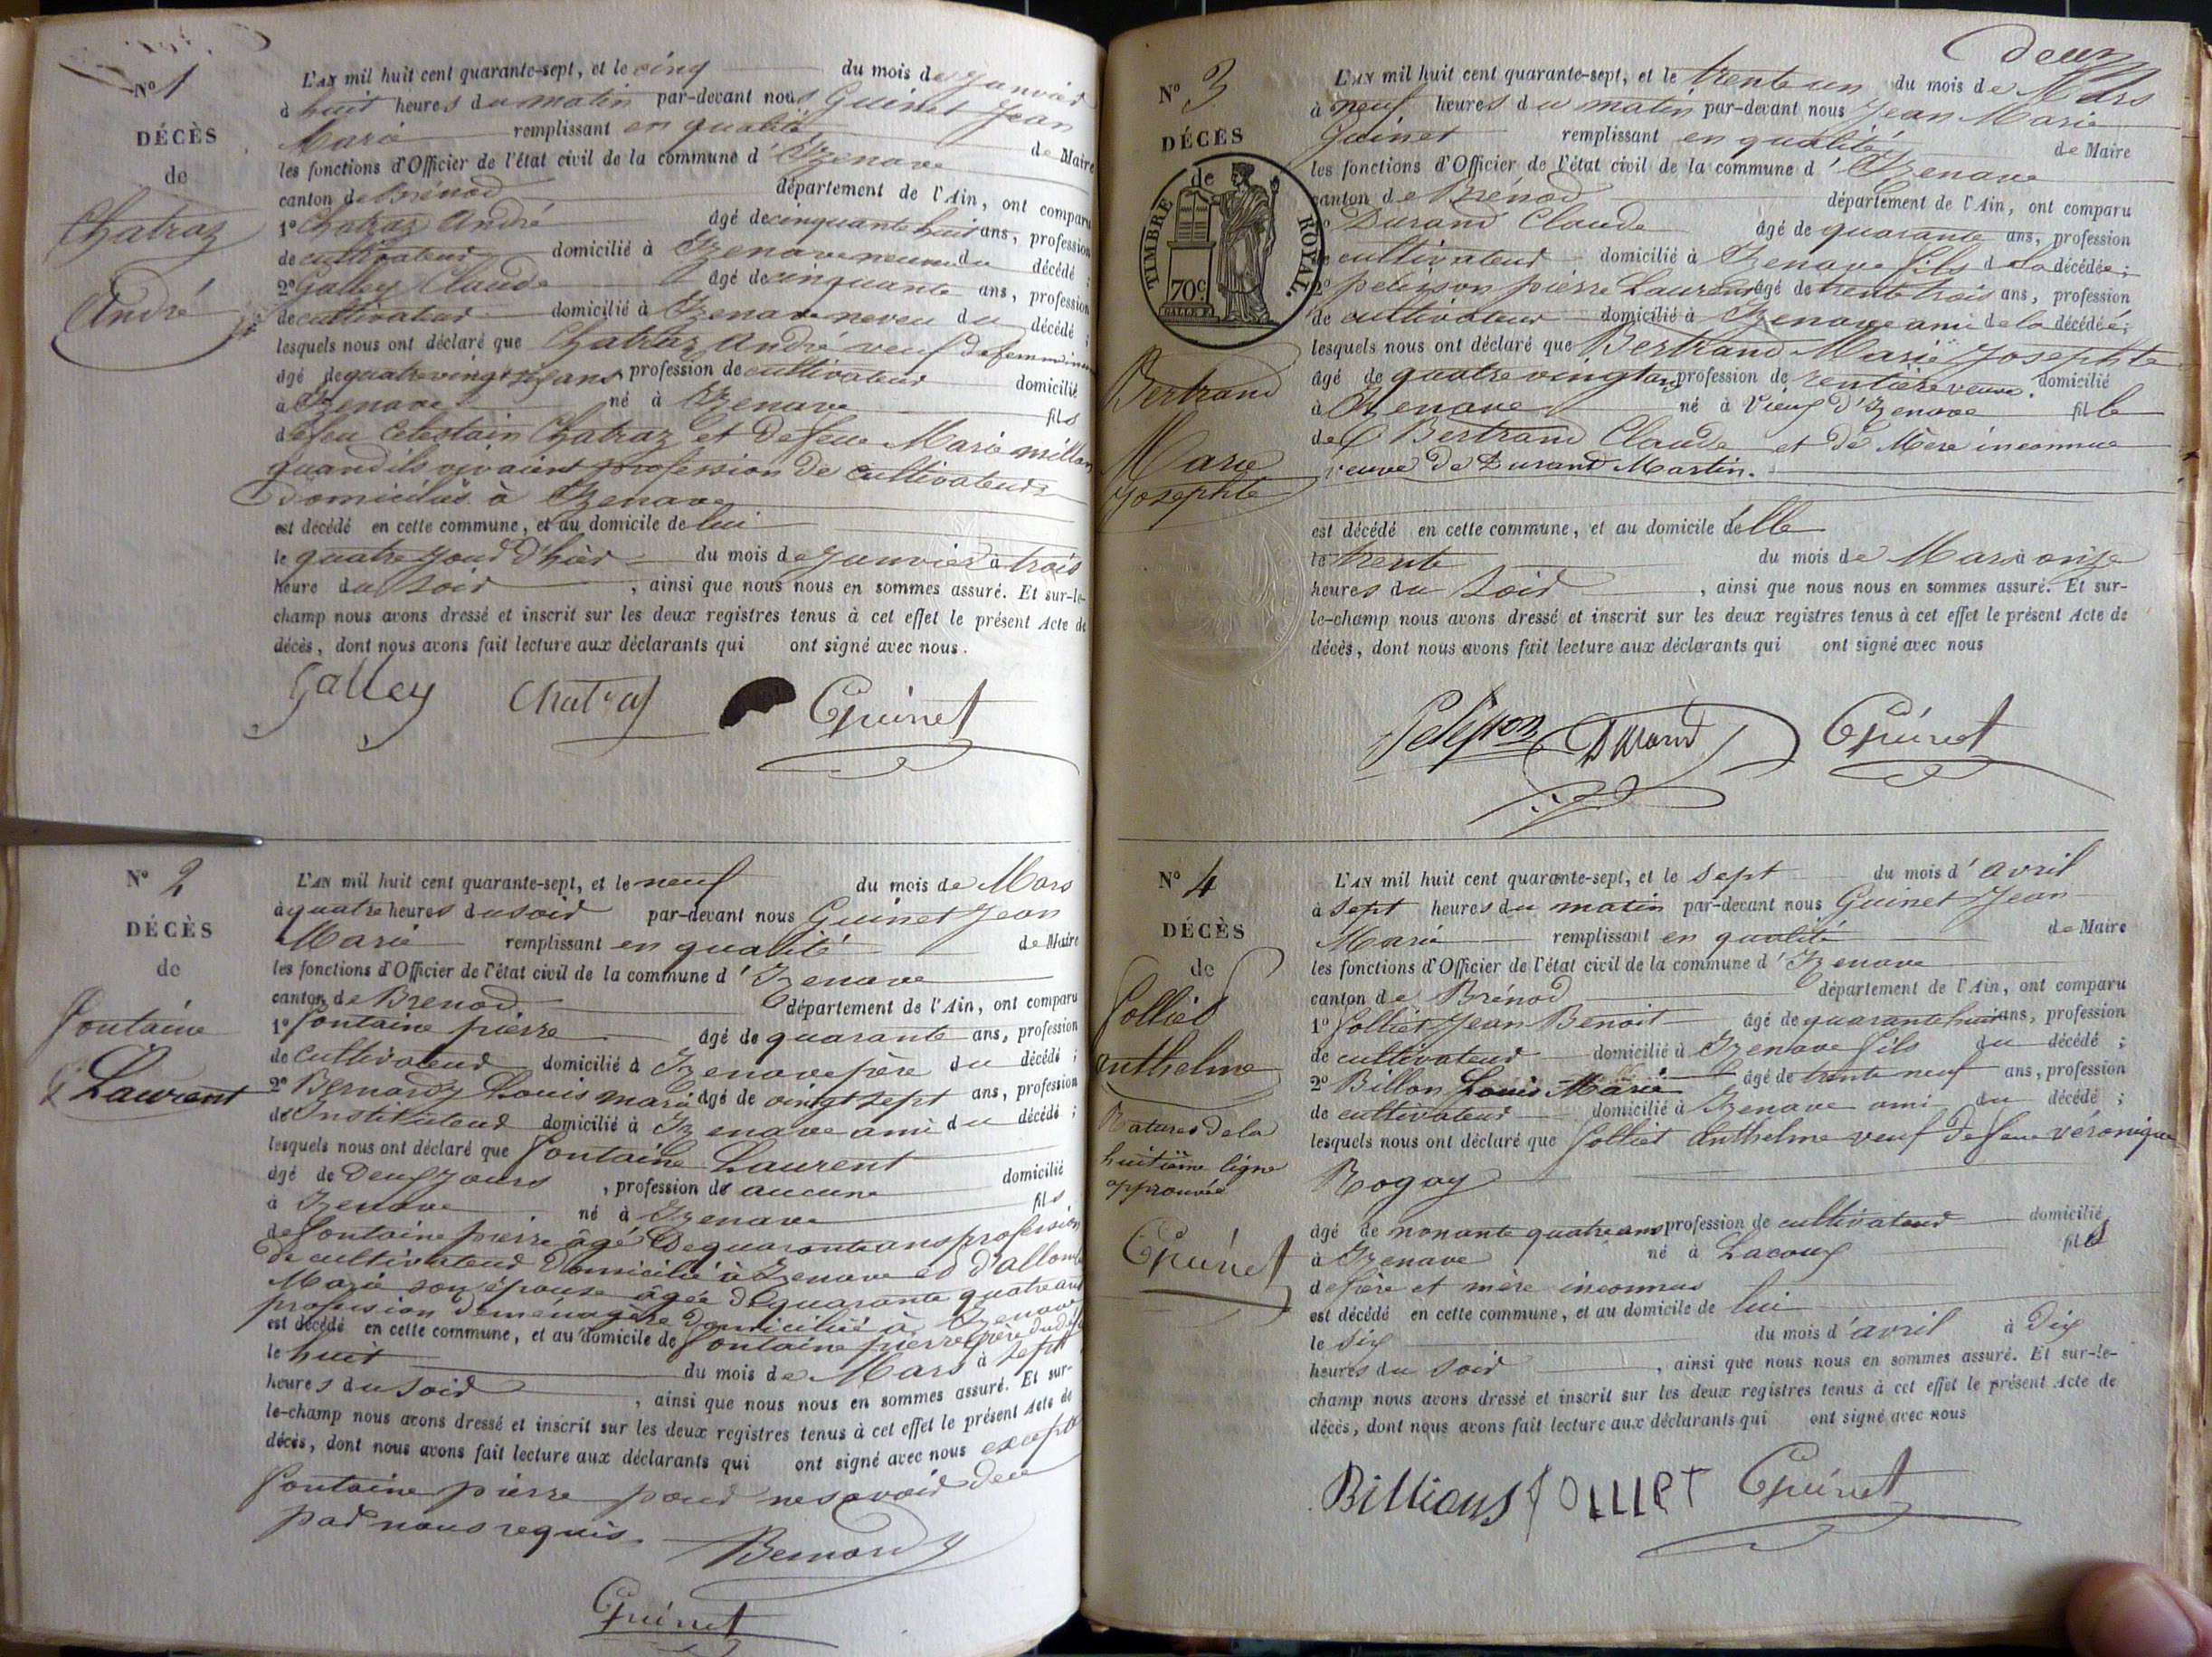 N° 1
DÉCÈS
de
Chatraz
André
L'AN mil huit cent quarante-sept, et le cinq du mois de Janvier
à huit heures du matin par-devant nous Guinet Jean
Marie remplissant en qualité de Maire
les fonctions d'Officier de l'état civil de la commune d'Izenave
canton de Brénod département de l'Ain, ont comparu
1° Chatraz André âgé de cinquante huit ans, profession
de cultivateur domicilié à Izenave neveu du décédé ;
2° Galley Claude âgé de cinquante ans, profession
de cultivateur domicilié à Izenave neveu du décédé ;
lesquels nous ont déclaré que Chatraz André veuf de
âgé de quatre vingt ans profession de cultivateur domicilié
à Izenave né à Izenave fils
de feu Celestain Chatraz et de feue Marie millon
quand ils vivaient profession de cultivateurs
domiciliés à Izenave
est décédé en cette commune, et au domicile de lui
le quatre jour d'hier du mois de Janvier à trois
heure du soir , ainsi que nous nous en sommes assuré. Et sur-le-
champ nous avons dressé et inscrit sur les deux registres tenus à cet effet le présent Acte de
décès, dont nous avons fait lecture aux déclarants qui ont signé avec nous.
Galley Chatraz Guinet
N° 2
DÉCÈS
de
Fontaine
Laurent
L'AN mil huit cent quarante-sept, et le neuf du mois de Mars
à quatre heures du soir par-devant nous Guinet Jean
Marie remplissant en qualité de Maire
les fonctions d'Officier de l'état civil de la commune d'Izenave
canton de Brenod département de l'Ain, ont comparu
1° Fontaine pierre âgé de quarante ans, profession
de cultivateur domicilié à Izenave père du décédé ;
2° Bernardy Louis marie âgé de vingt sept ans, profession
de Instituteur domicilié à Izenave ami du décédé ;
lesquels nous ont déclaré que Fontaine Laurent
âgé de Deux Jours , profession de aucune domicilié
à Izenave né à Izenave fils
de Fontaine pierre âgé de quarante ans profession
de cultivateur domicilié à Izenave et d'allom
Marie son épouse âgée de quarante quatre ans
profession de ménagère domiciliée à Izenave
est décédé en cette commune, et au domicile de Fontaine pierre père du
le huit du mois de Mars à sept
heures du soir , ainsi que nous nous en sommes assuré. Et sur-
le-champ nous avons dressé et inscrit sur les deux registres tenus à cet effet le présent Acte de
décès, dont nous avons fait lecture aux déclarants qui ont signé avec nous excepté
Fontaine pierre pour ne savoir de ce
par nous requis.
Bernardy
Guinet
deux
N° 3
DÉCÈS
de
TIMBRE ROYAL.
70c
Bertrand
Marie
Josephte
L'AN mil huit cent quarante-sept, et le trente un du mois de Mars
à neuf heures du matin par-devant nous Jean Marie
Guinet remplissant en qualité de Maire
les fonctions d'Officier de l'état civil de la commune d'Izenave
canton de Brénod département de l'Ain, ont comparu
Durand Claude âgé de quarante ans, profession
de cultivateur domicilié à Izenave fils de la décédée ;
2° pelisson pierre Laurent âgé de trente trois ans, profession
de cultivateur domicilié à Izenave ami de la décédée ;
lesquels nous ont déclaré que Bertrand Marie Josephte
âgé de quatre vingt ans profession de rentière veuve. domicilié
à Izenave né à Vieux d'Izenave fille
de Bertrand Claude et de Mère inconnue
veuve de Durand Martin.
est décédé en cette commune, et au domicile d'elle
le trente du mois de Mars à onze
heures du soir , ainsi que nous nous en sommes assuré. Et sur-
le-champ nous avons dressé et inscrit sur les deux registres tenus à cet effet le présent Acte de
décès, dont nous avons fait lecture aux déclarants qui ont signé avec nous
Pelisson Durand Guinet
N° 4
DÉCÈS
de
Folliet
anthelme
Ratures de la
huitième ligne
approuvée
Guinet
L'AN mil huit cent quarante-sept, et le sept du mois d'avril
à sept heures du matin par-devant nous Guinet Jean
Marie remplissant en qualité de Maire
les fonctions d'Officier de l'état civil de la commune d'Izenave
canton de Brénod département de l'Ain, ont comparu
1° Folliet Jean Benoit âgé de quarante huit ans, profession
de cultivateur domicilié à Izenave fils du décédé ;
2° Billon Louis Marie âgé de trente neuf ans, profession
de cultivateur domicilié à Izenave ami du décédé ;
lesquels nous ont déclaré que Folliet Anthelme veuf de feue véronique
Rogay
âgé de nonante quatre ans profession de cultivateur domicilié
à Izenave né à Lacoux fils
de père et mère inconnus
est décédé en cette commune, et au domicile de lui
le six du mois d'avril à Dix
heures du soir , ainsi que nous nous en sommes assuré. Et sur-le-
champ nous avons dressé et inscrit sur les deux registres tenus à cet effet le présent Acte de
décès, dont nous avons fait lecture aux déclarants qui ont signé avec nous
Billions folliet Guinet